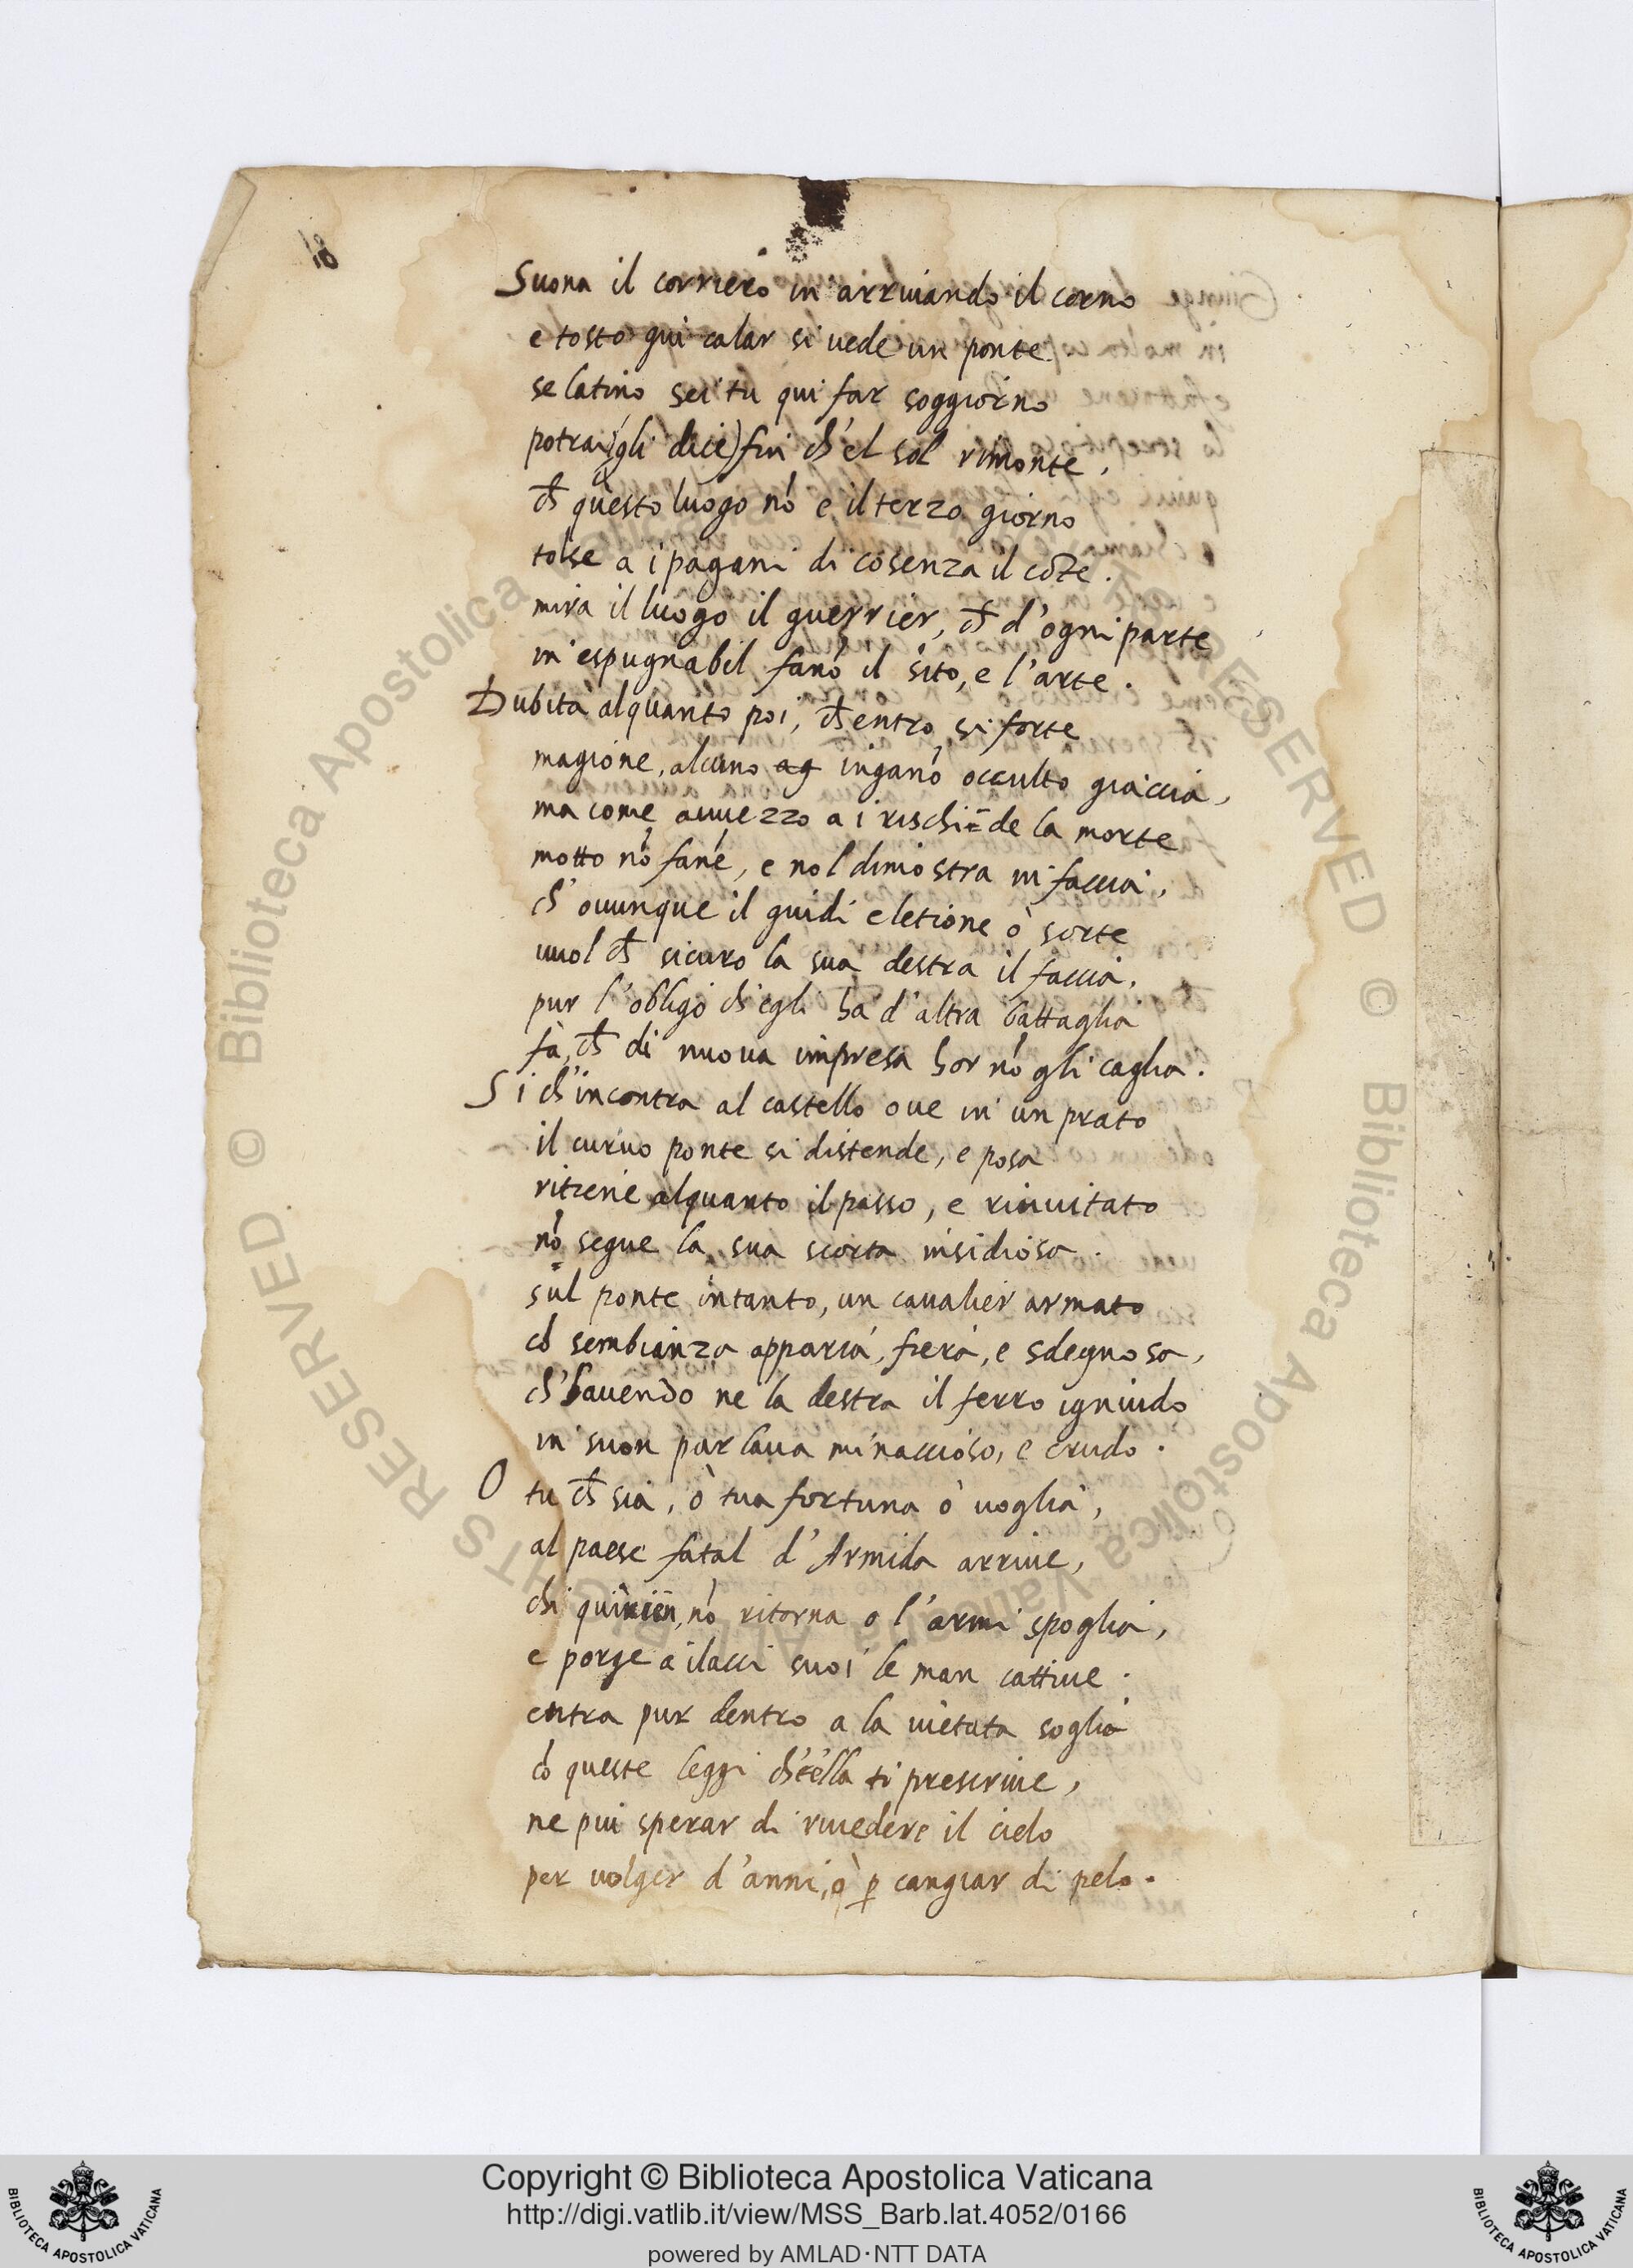 18
Suona il corriero in arriuando il corno
e tosto giu calar si uede un ponte
se latino sei tu qui far soggiorno
potrai (gli dice) fin ch'el sol rimonte,
ch̄ questo luogo nō e il terzo giorno
tolse a i pagani di cosenza il cōte.
mira il luogo il guerrier, ch̄ d'ogni parte
in espugnabil fanō il sito, e l'arte.
Dubita alquanto poi, ch̄ entro si forte
magione, alcuno ag inganō occulto giaccia,
ma come auuezzo a i rischi de la morte
motto nō fane, e nol dimostra in faccia,
ch'ouunque il guidi eletione ò sorte
uuol ch̄ sicuro la sua destra il faccia.
pur l'obligo ch'egli ha d'altra battaglia
fà, ch̄ di nuoua impresa hor nō gli caglia.
Si ch'incontra al castello oue in un prato
il curuo ponte si distende, e posa
ritiene alquanto il passo, e rinuitato
nō segue la sua scorta insidiosa.
sul ponte intanto, un caualier armato
cō sembianza apparia, fiera, e sdegnosa,
ch'hauendo ne la destra il ferro ignudo
in suon parlaua minaccioso, e crudo.
O tu ch̄ sia, ò tua fortuna ò uoglia,
al paese fatal d'Armida arriue,
chi quiuien, nō ritorna o l'armi spoglia,
e porge a i lacci suoi le man cattiue.
entra pur dentro a la uietata soglia
cō queste leggi ch'ella ti prescriue,
ne piu sperar di riuedere il cielo
per uolger d'anni, ò p cangiar di pelo.
Copyright © Biblioteca Apostolica Vaticana
http://digi.vatlib.it/view/MSS_Barb.lat.4052/0166
powered by AMLAD·NTT DATA
BIBLIOTECA APOSTOLICA VATICANA
BIBLIOTECA APOSTOLICA VATICANA